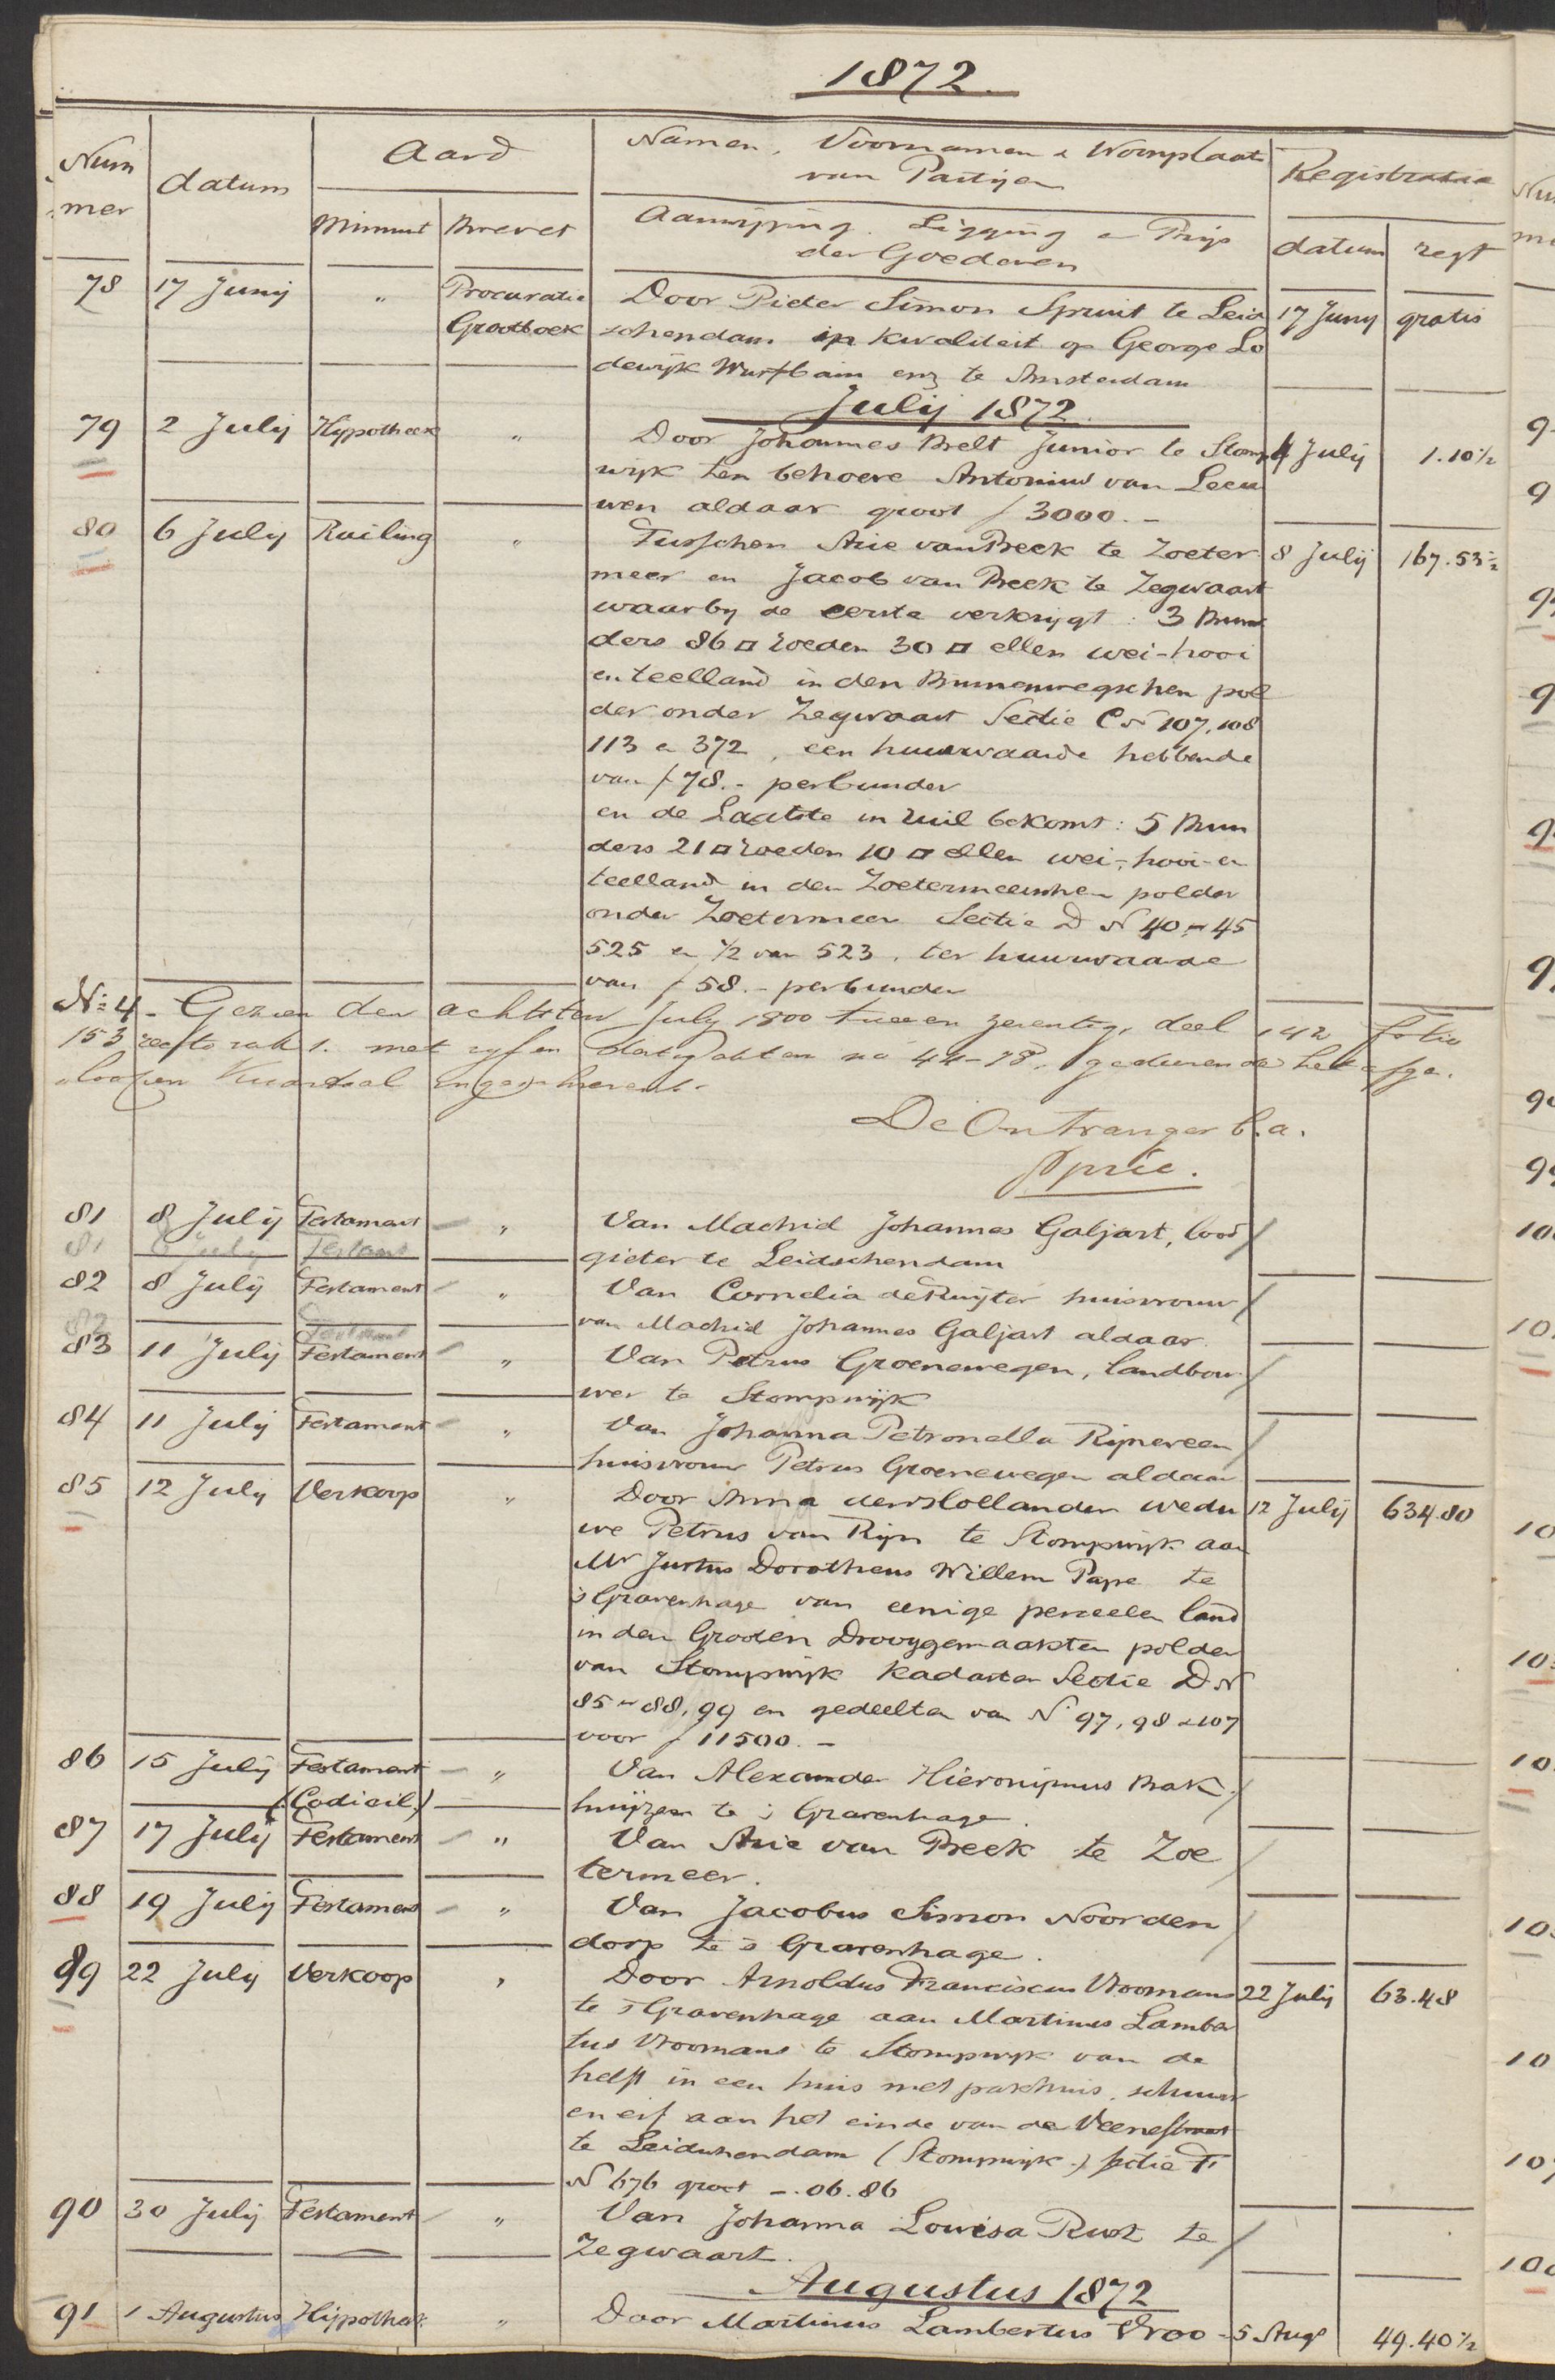 1872.
Nummer datum Aard Namen, Voornamen & Woonplaats van Partijen Registratie
Minuut Brevet Aanwijzing, Ligging & Prijs der Goederen datum regt
78 17 Junij " Procuratie Door Pieter Simon Spruit te Leid 17 Junij gratis
Grootboek schendam in kwaliteit op George Lo
dewijk Wurfbain enz te Amsterdam
Julij 1872.
79 2 Julij Hypotheek " Door Johannes Belt Junior te Stomp 4 Julij 1.10½
wijk ten behoeve Antonius van Leeu
wen aldaar groot f 3000.-
80 6 Julij Ruiling " Tusschen Arie van Beek te Zoeter 8 Julij 167.53½
meer en Jacob van Beek te Zegwaart
waarbij de eerste verkrijgt: 3 Bun
ders 86 □ roeden 30 □ ellen wei-hooi
en teelland in den Binnenwegschen pol
der onder Zegwaart Sectie C N 107, 108
113 & 372, een huurwaarde hebbende
van f 78.- per bunder
en de Laatste in ruil bekomt: 5 Bun
ders 21 □ roeden 10 □ ellen wei-, hooi- en
teelland in den Zoetermeerschen polder
onder Zoetermeer Sectie D N 40 - 45
525 & ½ van 523, ter huurwaarde
van f 58.- per bunder
No: 4. Gezien den achtsten July 1800 twee en zeventig, deel 142 folio
153 recto vak 1. met vyf en dertig akten no 44-78. gedurende het afge-
loopen Kwartaal ingeschreven.
De Ontvanger b.a.
81 8 Julij Testament " Van Machiel Johannes Galjart, lood
81 8 July Testament
gieter te Leidschendam
82 8 Julij Testament " Van Cornelia de Ruijter huisvrouw
van Machiel Johannes Galjart aldaar.
82 Testament
83 11 Julij Testament " Van Petrus Groenewegen, landbou
wer te Stompwijk
84 11 Julij Testament " Van Johanna Petronella Rijnereen
huisvrouw Petrus Groenewegen aldaar
85 12 July Verkoop " Door Anna den Hollander wedu 12 Julij 634.80
we Petrus van Rijn te Stompwijk aan
Mr Justus Dorotheus Willem Pape te
's Gravenhage van eenige perceelen land
in den Grooten Drooggemaakten polder
van Stompwijk kadaster Sectie D N
85 - 88, 99 en gedeelten van No. 97, 98 & 107
voor f 11500.-
86 15 Julij Testament " Van Alexander Hieronijmus Bak
(Codicil) huijzen te 's Gravenhage.
87 17 Julij Testament " Van Arie van Beek te Zoe
termeer.
88 19 Julij Testament " Van Jacobus Simon Noorden
dorp te 's Gravenhage.
89 22 Julij Verkoop " Door Arnoldus Franciscus Vroomans 22 Julij 63.48
te 's Gravenhage aan Martinus Lamber
tus Vroomans te Stompwijk van de
helft in een huis met pakhuis, schuur
en erf aan het einde van de Veenestraat
te Leidschendam (Stompwijk.) sectie F
N 676 groot -.06.86
90 30 Julij Testament " Van Johanna Louisa Rust te
Zegwaart.
Augustus 1872
91 1 Augustus Hijpotheek " Door Martinus Lambertus Vroo- 5 Augs 49.40½